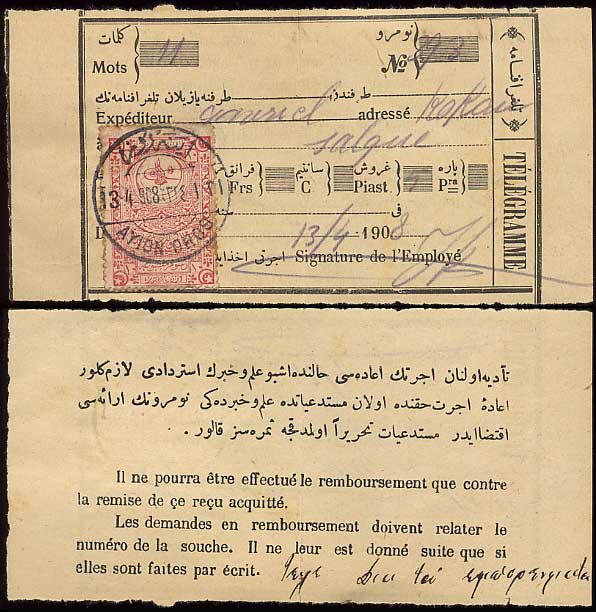 كلمات
نومرو
Mots 11
№
طرفندن
طرفنه يازيلان تلغرافنامه نك
Expéditeur
adressé
پاره
غروش
سانتيم
فرانق
Frs
C
Piast
Pra
فى
13/4 1908
اجرتى اخذ
Signature de l'Employé
تلغرافنامه
TÉLÉGRAMME
AYION-OROS
تأديه اولنان اجرتك اعاده سى حالنده اشبو علم وخبرك استردادى لازم كلور
اعادۀ اجرت حقنده اولان مستدعياتده علم وخبرده كى نومرونك ارائه سى
اقتضا ايدر مستدعيات تحريراً اولمدقجه ثمره سز قالور .
Il ne pourra être effectué le remboursement que contre
la remise de çe reçu acquitté.
Les demandes en remboursement doivent relater le
numéro de la souche. Il ne leur est donné suite que si
elles sont faites par écrit.